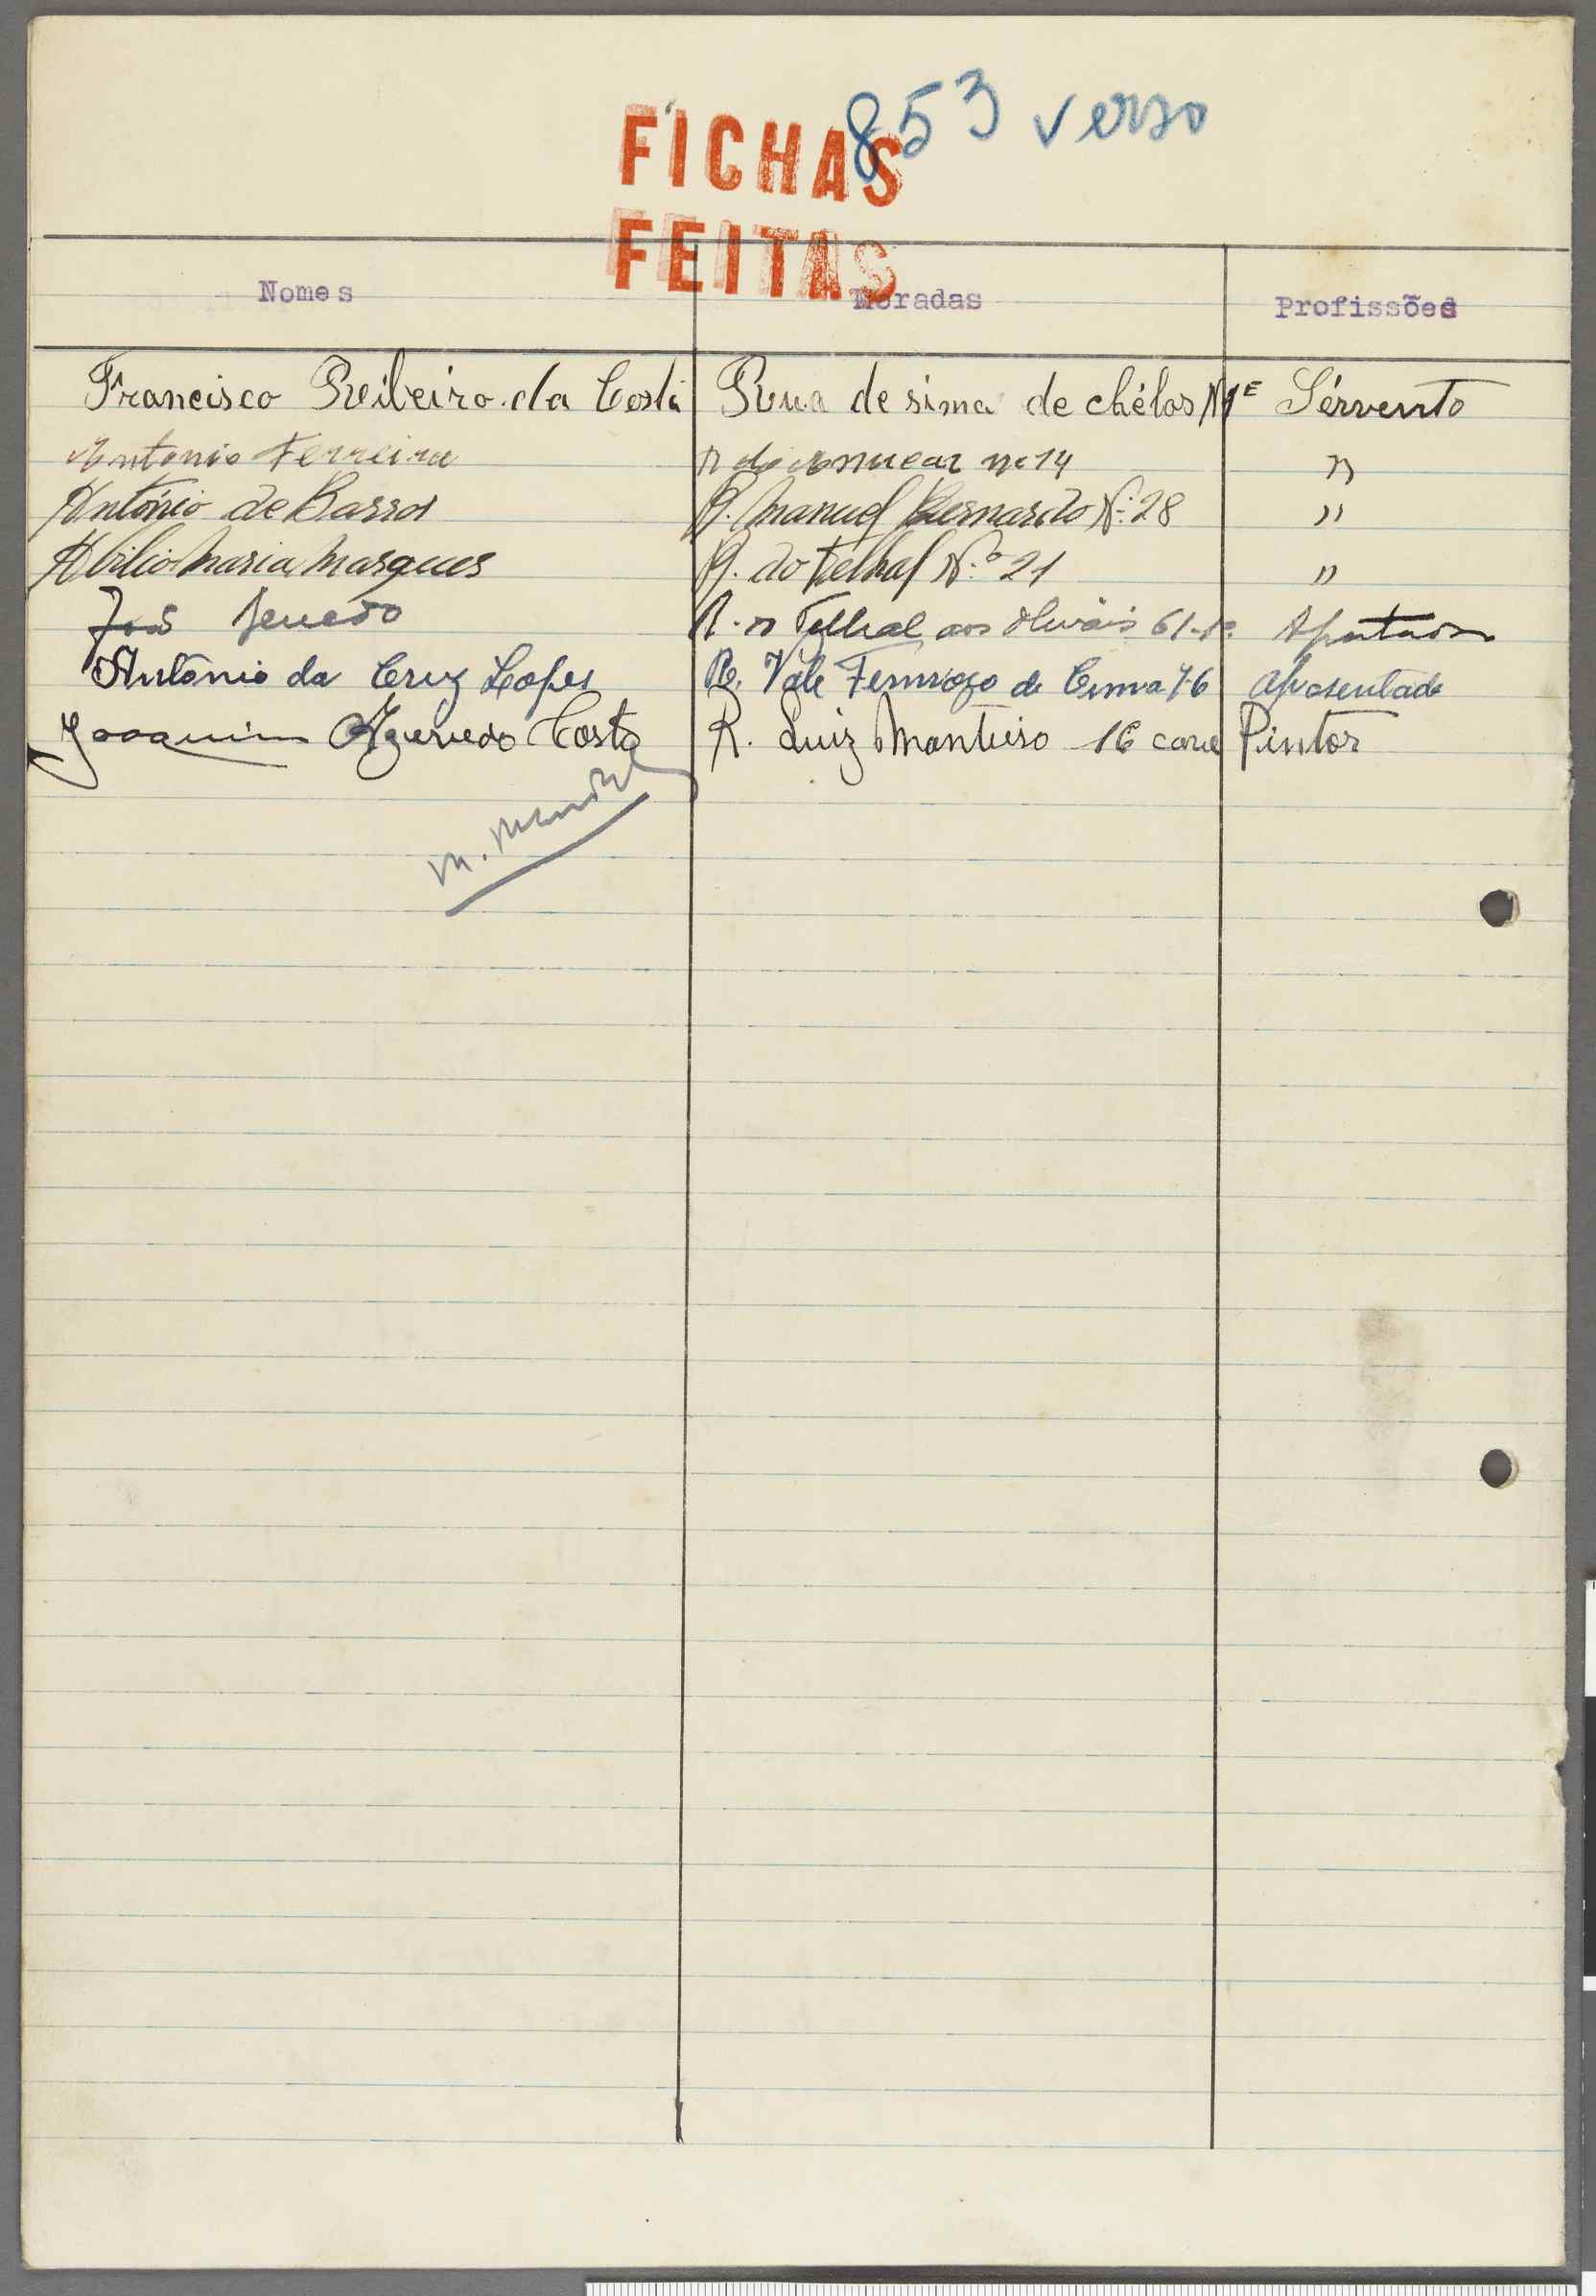 853 verso
FICHAS
FEITAS
Nomes Moradas Profissões
Francisco Ribeiro da Costa Rua de sima de chélas Nº1E Sérvento
Antonio Ferreira nº 14 "
António de Barros R. Manuel Bernardo Nº 28 "
Abilio Maria Marques R. do Telhal N.º 21 "
José R. Telhal aos Olivais 61-1º
António da Cruz Lopes R. Vale Formozo de Cima 76 Aposentado
Joaquim Azevedo Costa R. Luiz Monteiro 16 cave Pintor
M.